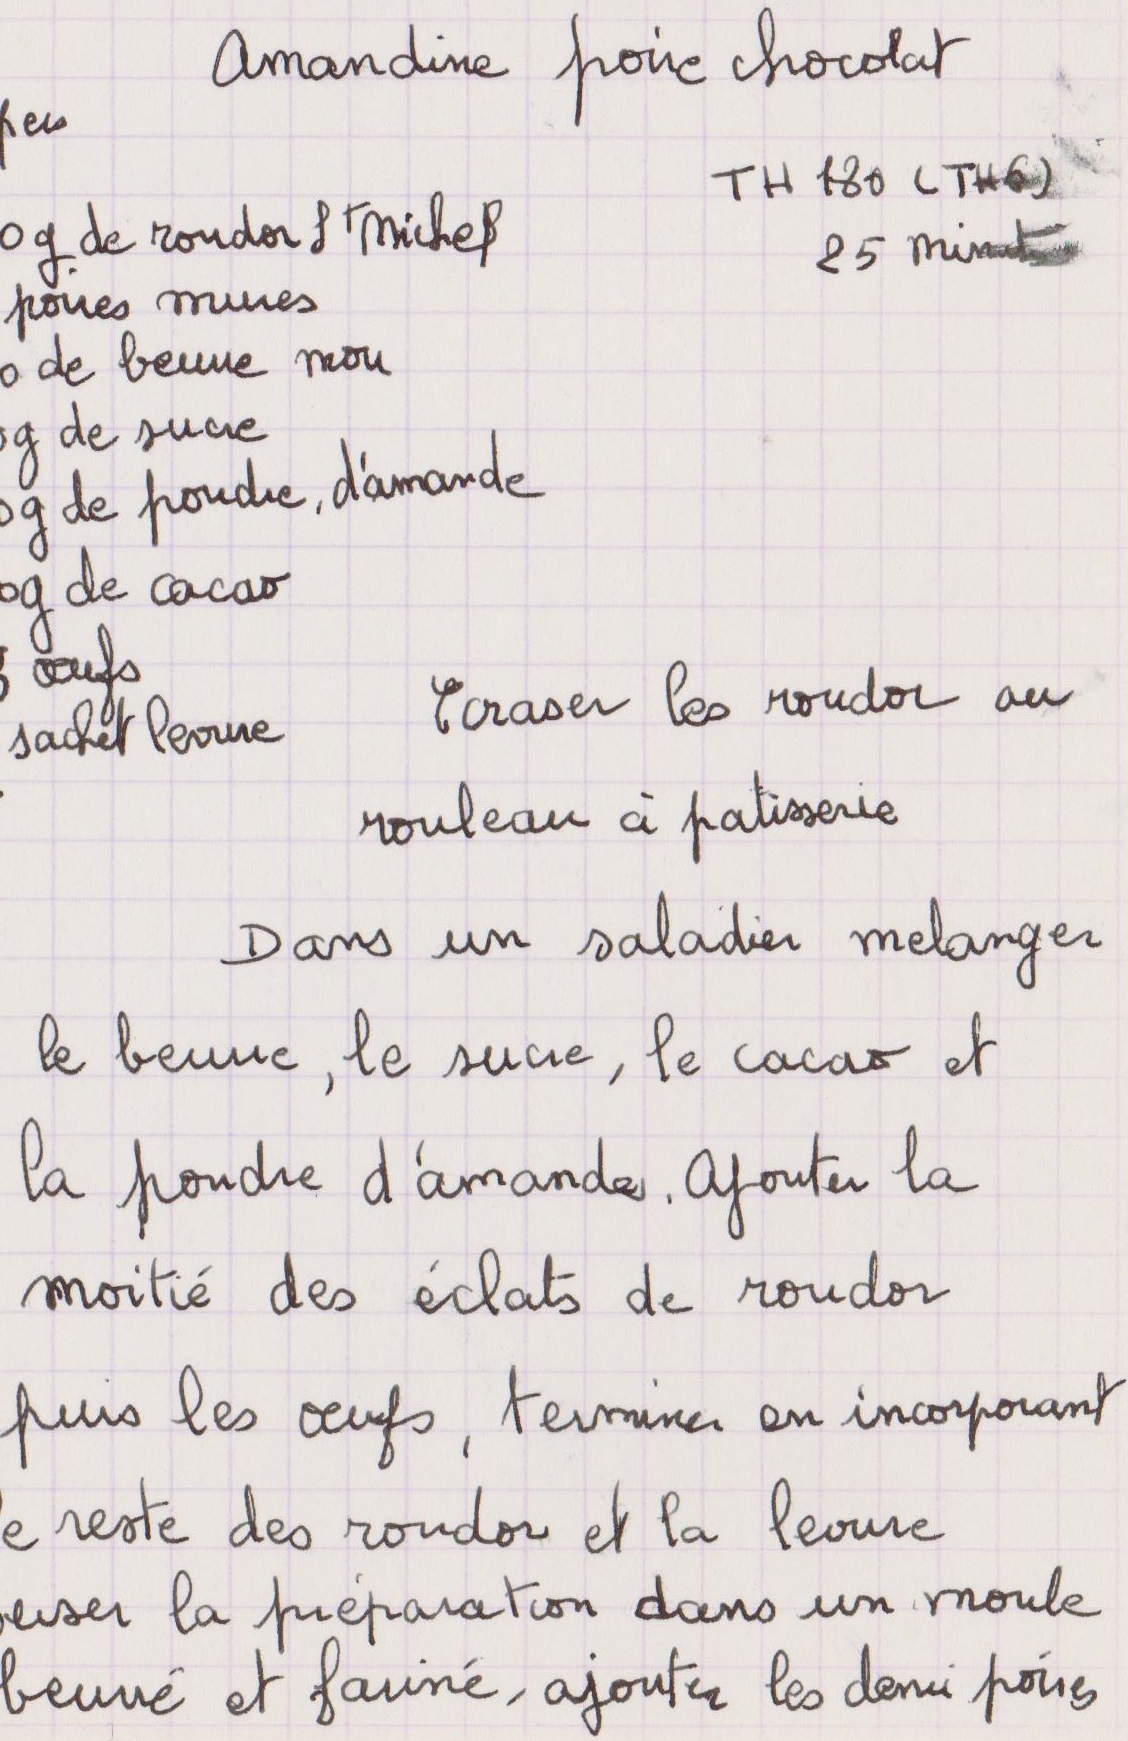 Amandine poire chocolat
pers
TH 180 (TH6)
0g de roudor St Michel
25 minut
poires mures
0 de beurre mou
0g de sucre
0g de poudre d'amande
0g de cacao
3 œufs
sachet levure
Ecraser les roudor au
rouleau à patisserie
Dans un saladier melanger
le beurre, le sucre, le cacao et
la poudre d'amande. Ajouter la
moitié des éclats de roudor
puis les œufs, terminer en incorporant
e reste des roudor et la levure
erser la préparation dans un moule
beurré et fariné, ajouter les demi poires